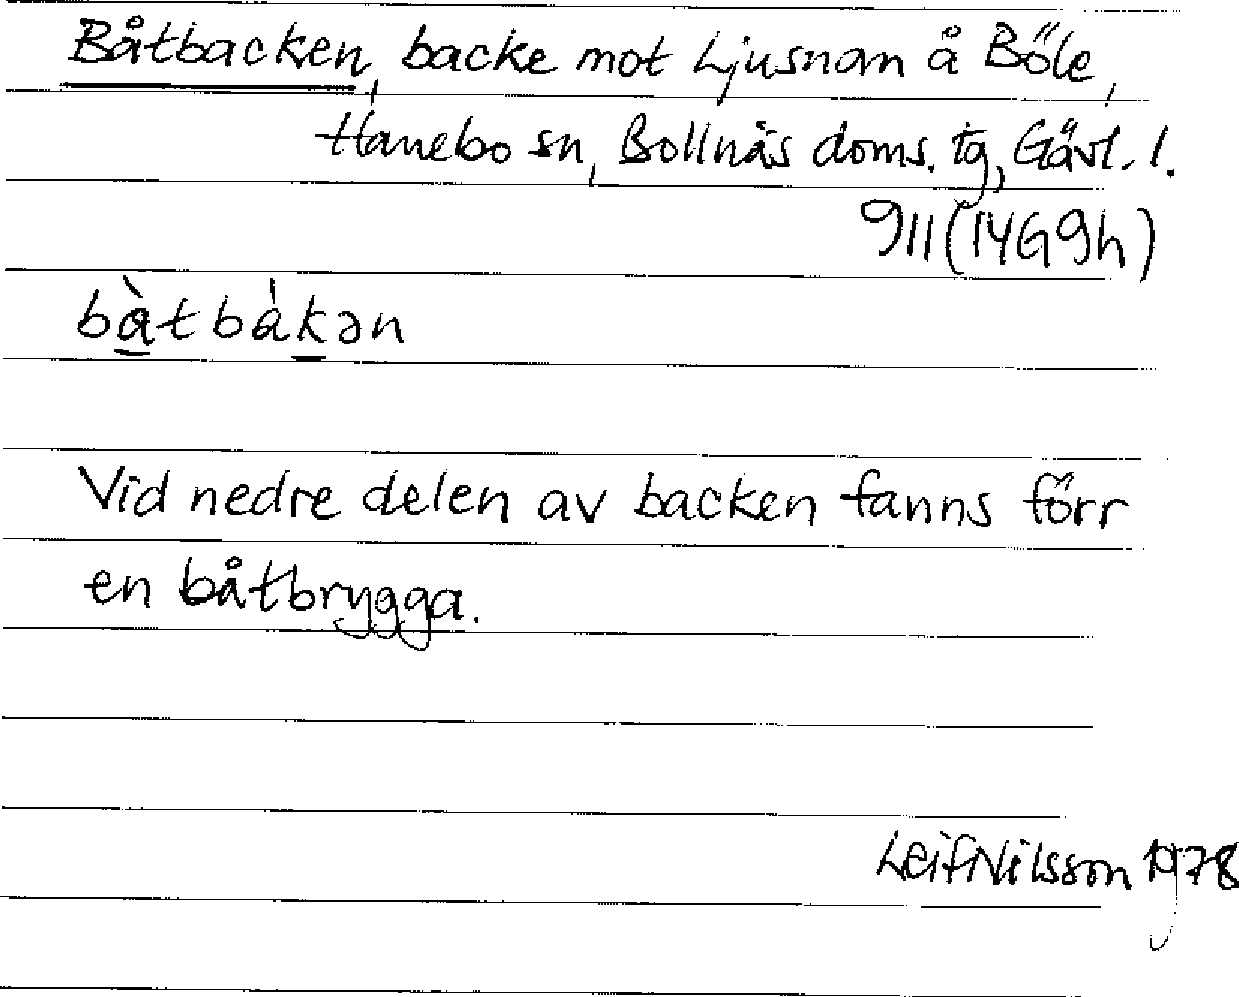 Båtbacken, backe mot Ljusnan å Böle,
Hanebo sn, Bollnäs doms. tg, Gävl. l.
911 (14G9h)
bàtbákən
Vid nedre delen av backen fanns förr
en båtbrygga.
Leif Nilsson 1978